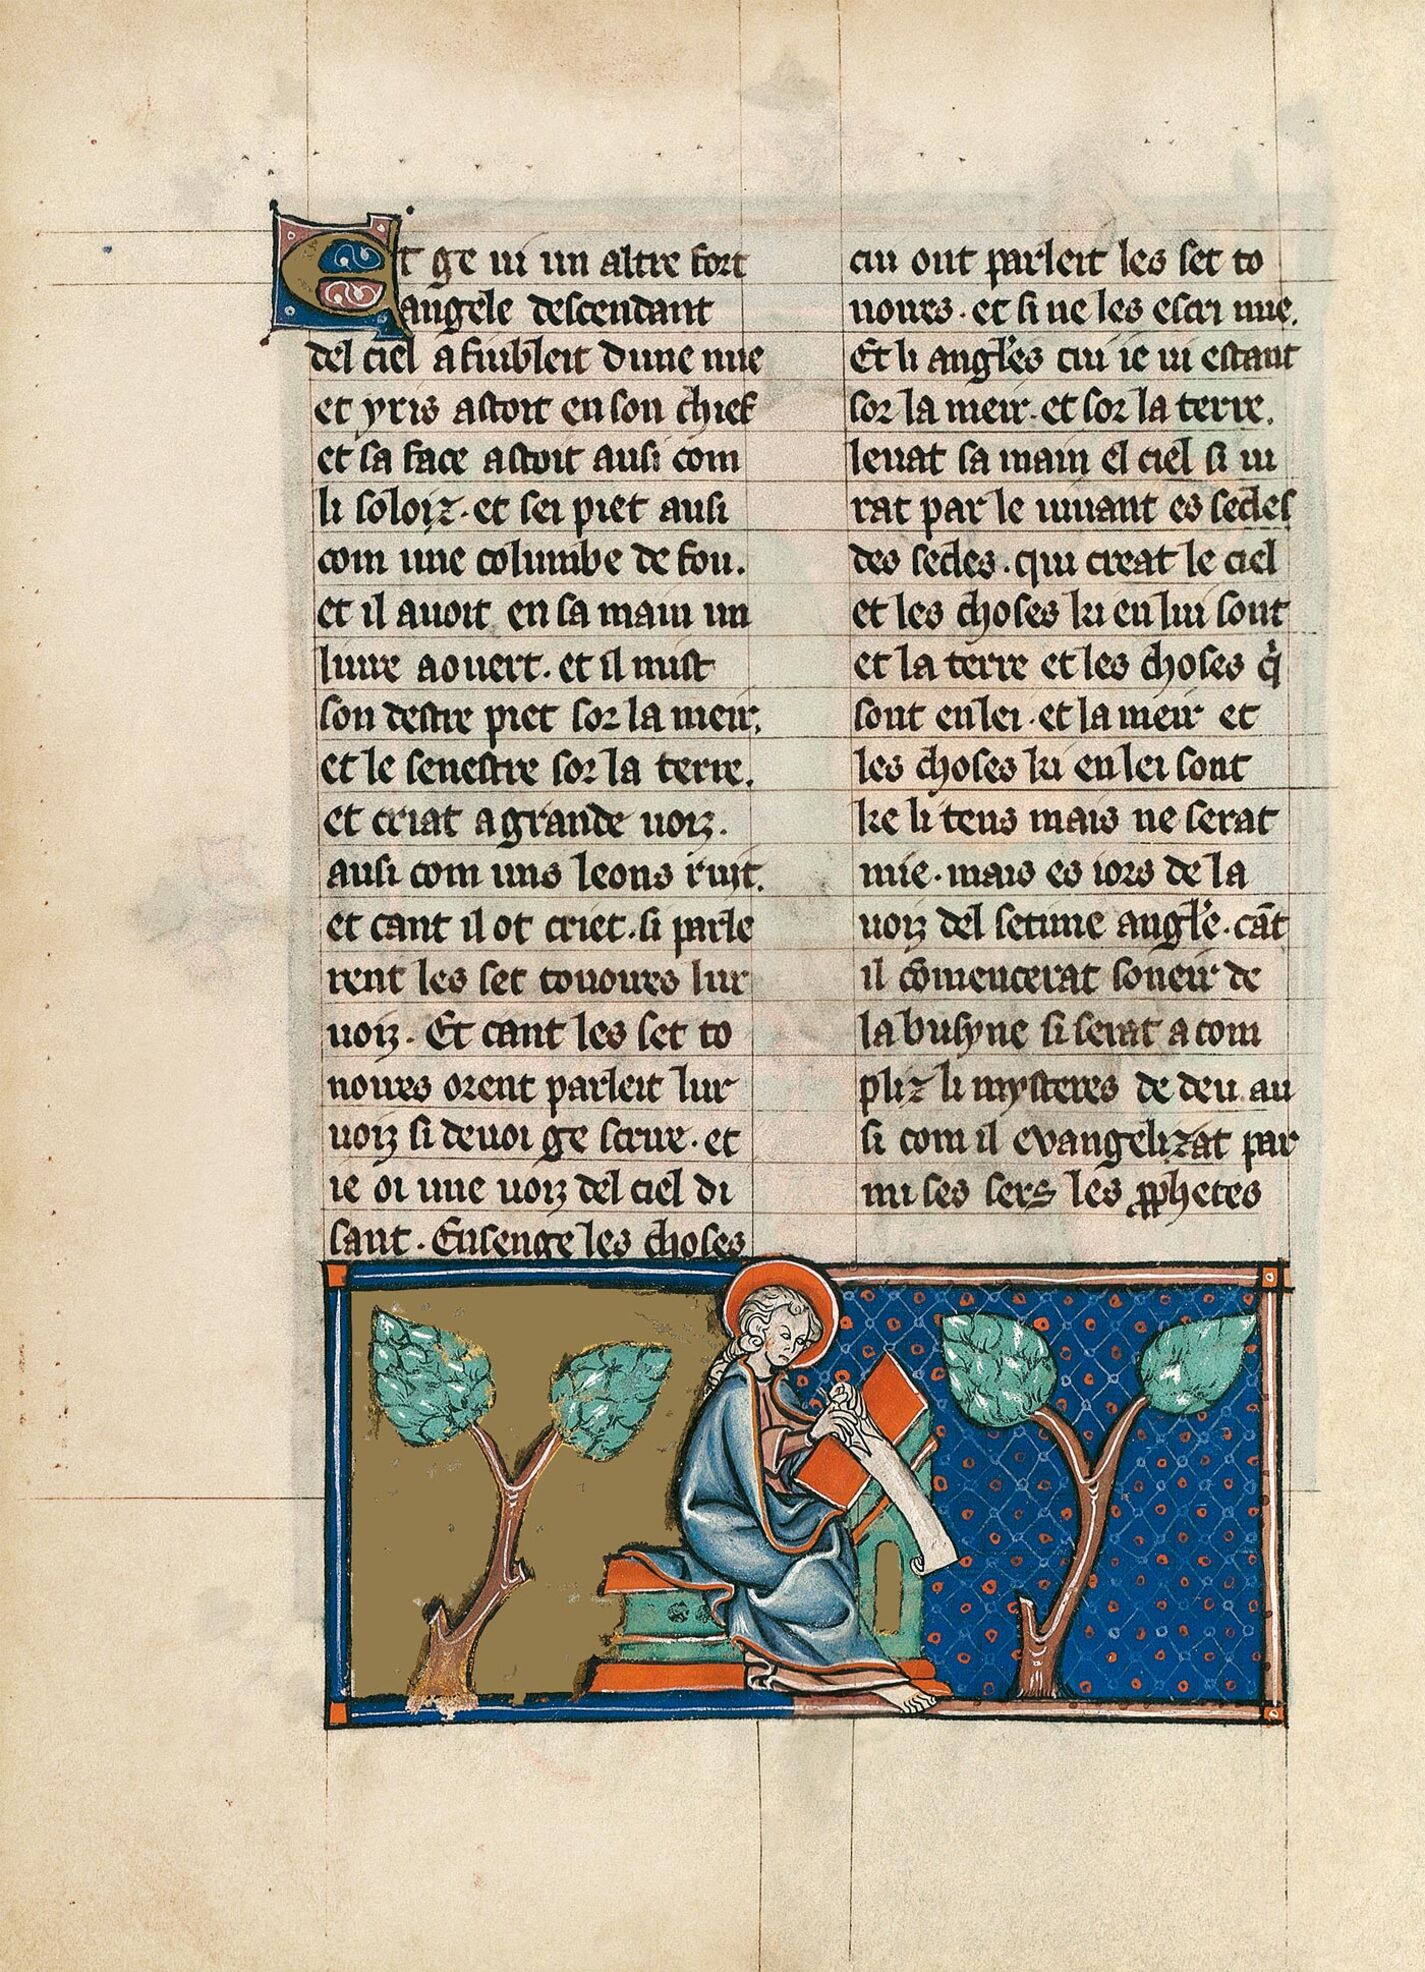 Et ge ui un altre fort
angele descendant
del ciel afuibleit dune nue
et yris astoit en son chief
et sa face astoit ausi com
li soloiz. et sei piet ausi
com une columbe de fou.
et il auoit en sa main un
liure aouert. et il mist
son destre piet sor la meir.
et le senestre sor la terre.
et criat a grande uoiz.
ausi com uns leons ruit.
et cant il ot criet. si parle
rent les set tonoires lur
uoiz. Et cant les set to
noires orent parleit lur
uoiz si deuoi ge scriue. et
ie oi une uoiz del ciel di
sant. Ensenge les choses
cui ont parleit les set to
noires. et si ne les escri mie.
Et li angles cui ie ui estant
sor la meir. et sor la terre.
leuat sa main el ciel si iu
rat par le uiuant es secles
des secles. qui creat le ciel
et les choses ki en lui sont
et la terre et les choses q̇
sont en lei. et la meir et
les choses ki en lei sont
ke li tens mais ne serat
mie. mais es iors de la
uoiz del setime angle. cāt
il cōmencerat soneir de
la busyne si serat acom
pliz li mysteres de deu. au
si com il evangelizat par
mi ses sers les ꝓphetes